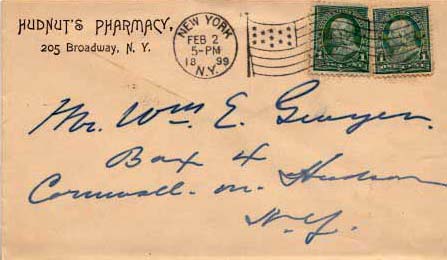 HUDNUT'S PHARMACY,
205 Broadway, N. Y.
NEW YORK
FEB 2
5-PM
18 99
N.Y.
1 1
Mr. Wm. E.
Box 4
Cornwall-on-Hudson
N.Y.